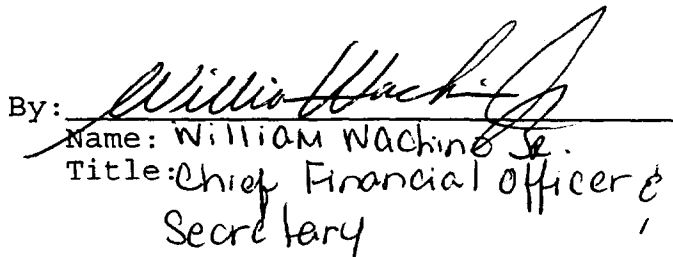 By: William Wachino Jr
Name: William Wachino Jr.
Title: Chief Financial Officer &
Secretary